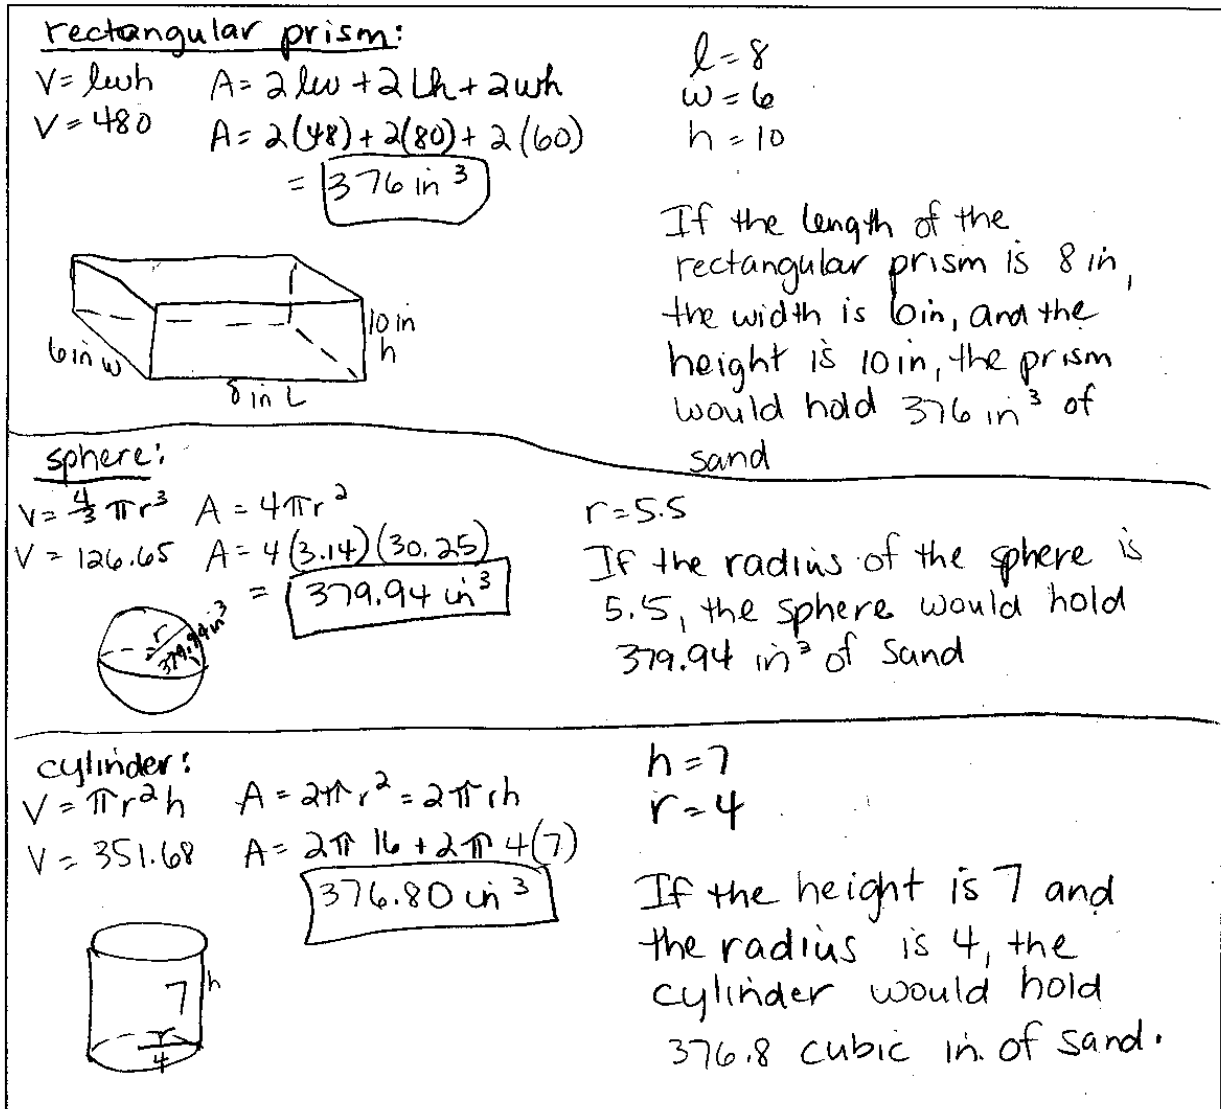 rectangular prism:
V = lwh A = 2lw + 2Lh + 2wh
V = 480 A = 2(48) + 2(80) + 2(60)
= 376 in³
l = 8
w = 6
h = 10
If the length of the
rectangular prism is 8 in,
the width is 6in, and the
height is 10in, the prism
would hold 376 in³ of
sand
10 in
h
6 in w
8 in L
sphere:
V = 4/3 πr³ A = 4πr²
V = 126.65 A = 4(3.14)(30.25)
= 379.94 in³
r
379.94 in³
r = 5.5
If the radius of the sphere is
5.5, the sphere would hold
379.94 in³ of sand
cylinder:
V = πr²h A = 2πr² = 2πrh
V = 351.68 A = 2π 16 + 2π 4(7)
376.80 in³
7 h
r
4
h = 7
r = 4
If the height is 7 and
the radius is 4, the
cylinder would hold
376.8 cubic in. of sand.